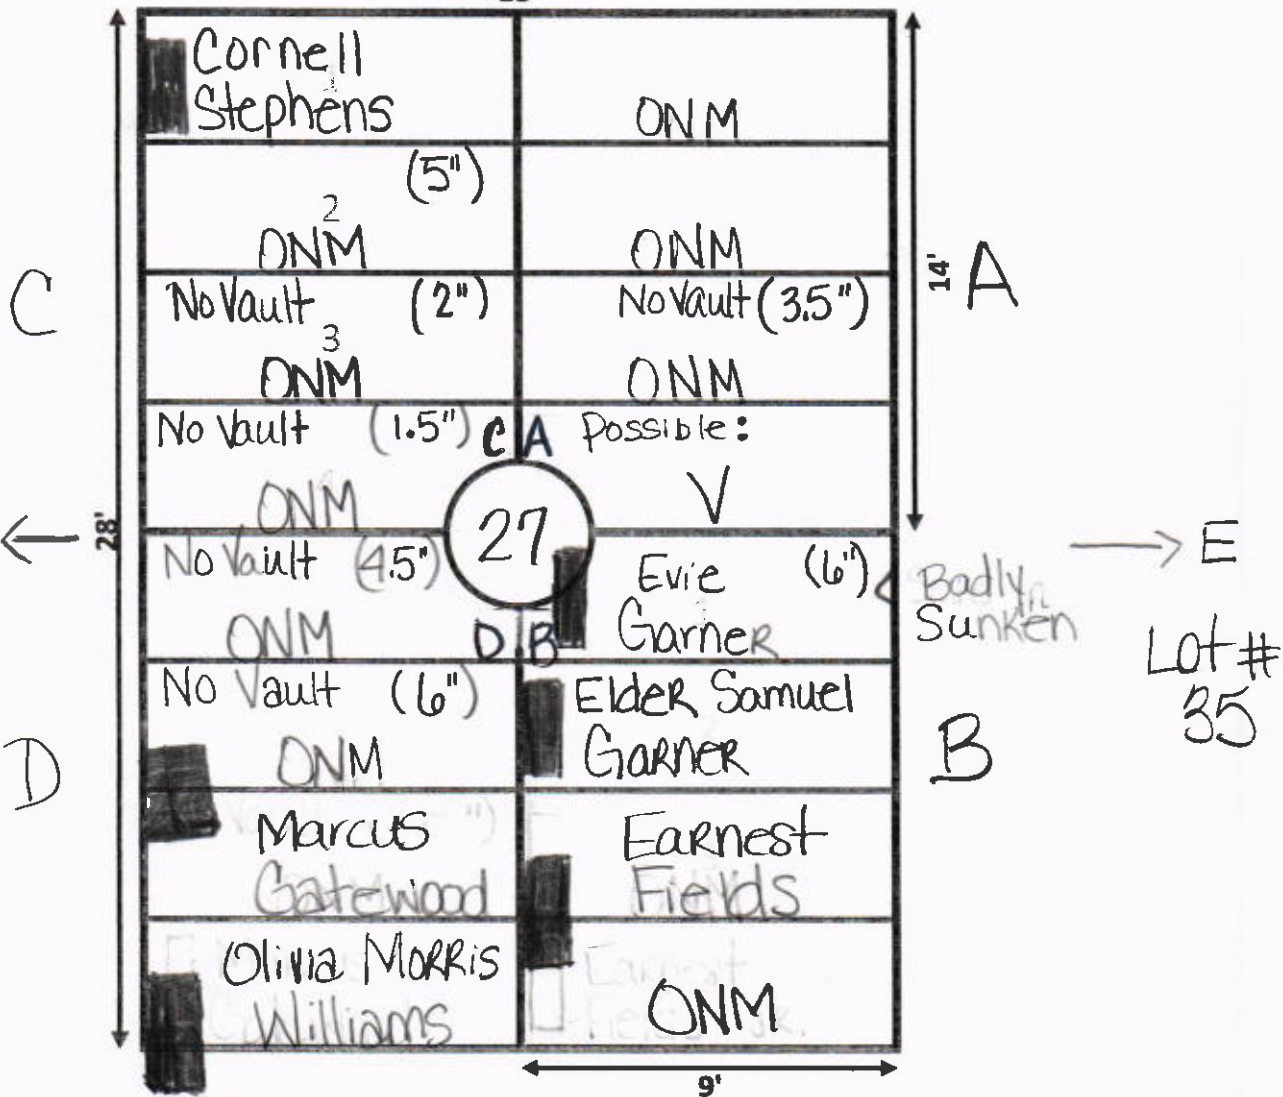 Cornell
Stephens
1
ONM
(5")
2
ONM
ONM
C
No Vault (2")
3
ONM
No Vault (3.5")
ONM
14'
A
No Vault (1.5")
ONM
C A
Possible:
V
28'
27
No Vault (4.5")
ONM
D B
Evie (6")
Garner
Badly
Sunken
E
Lot #
35
No Vault (6")
ONM
Elder Samuel
Garner
D
B
Marcus
Gatewood
Earnest
Fields
Olivia Morris
Williams
ONM
9'